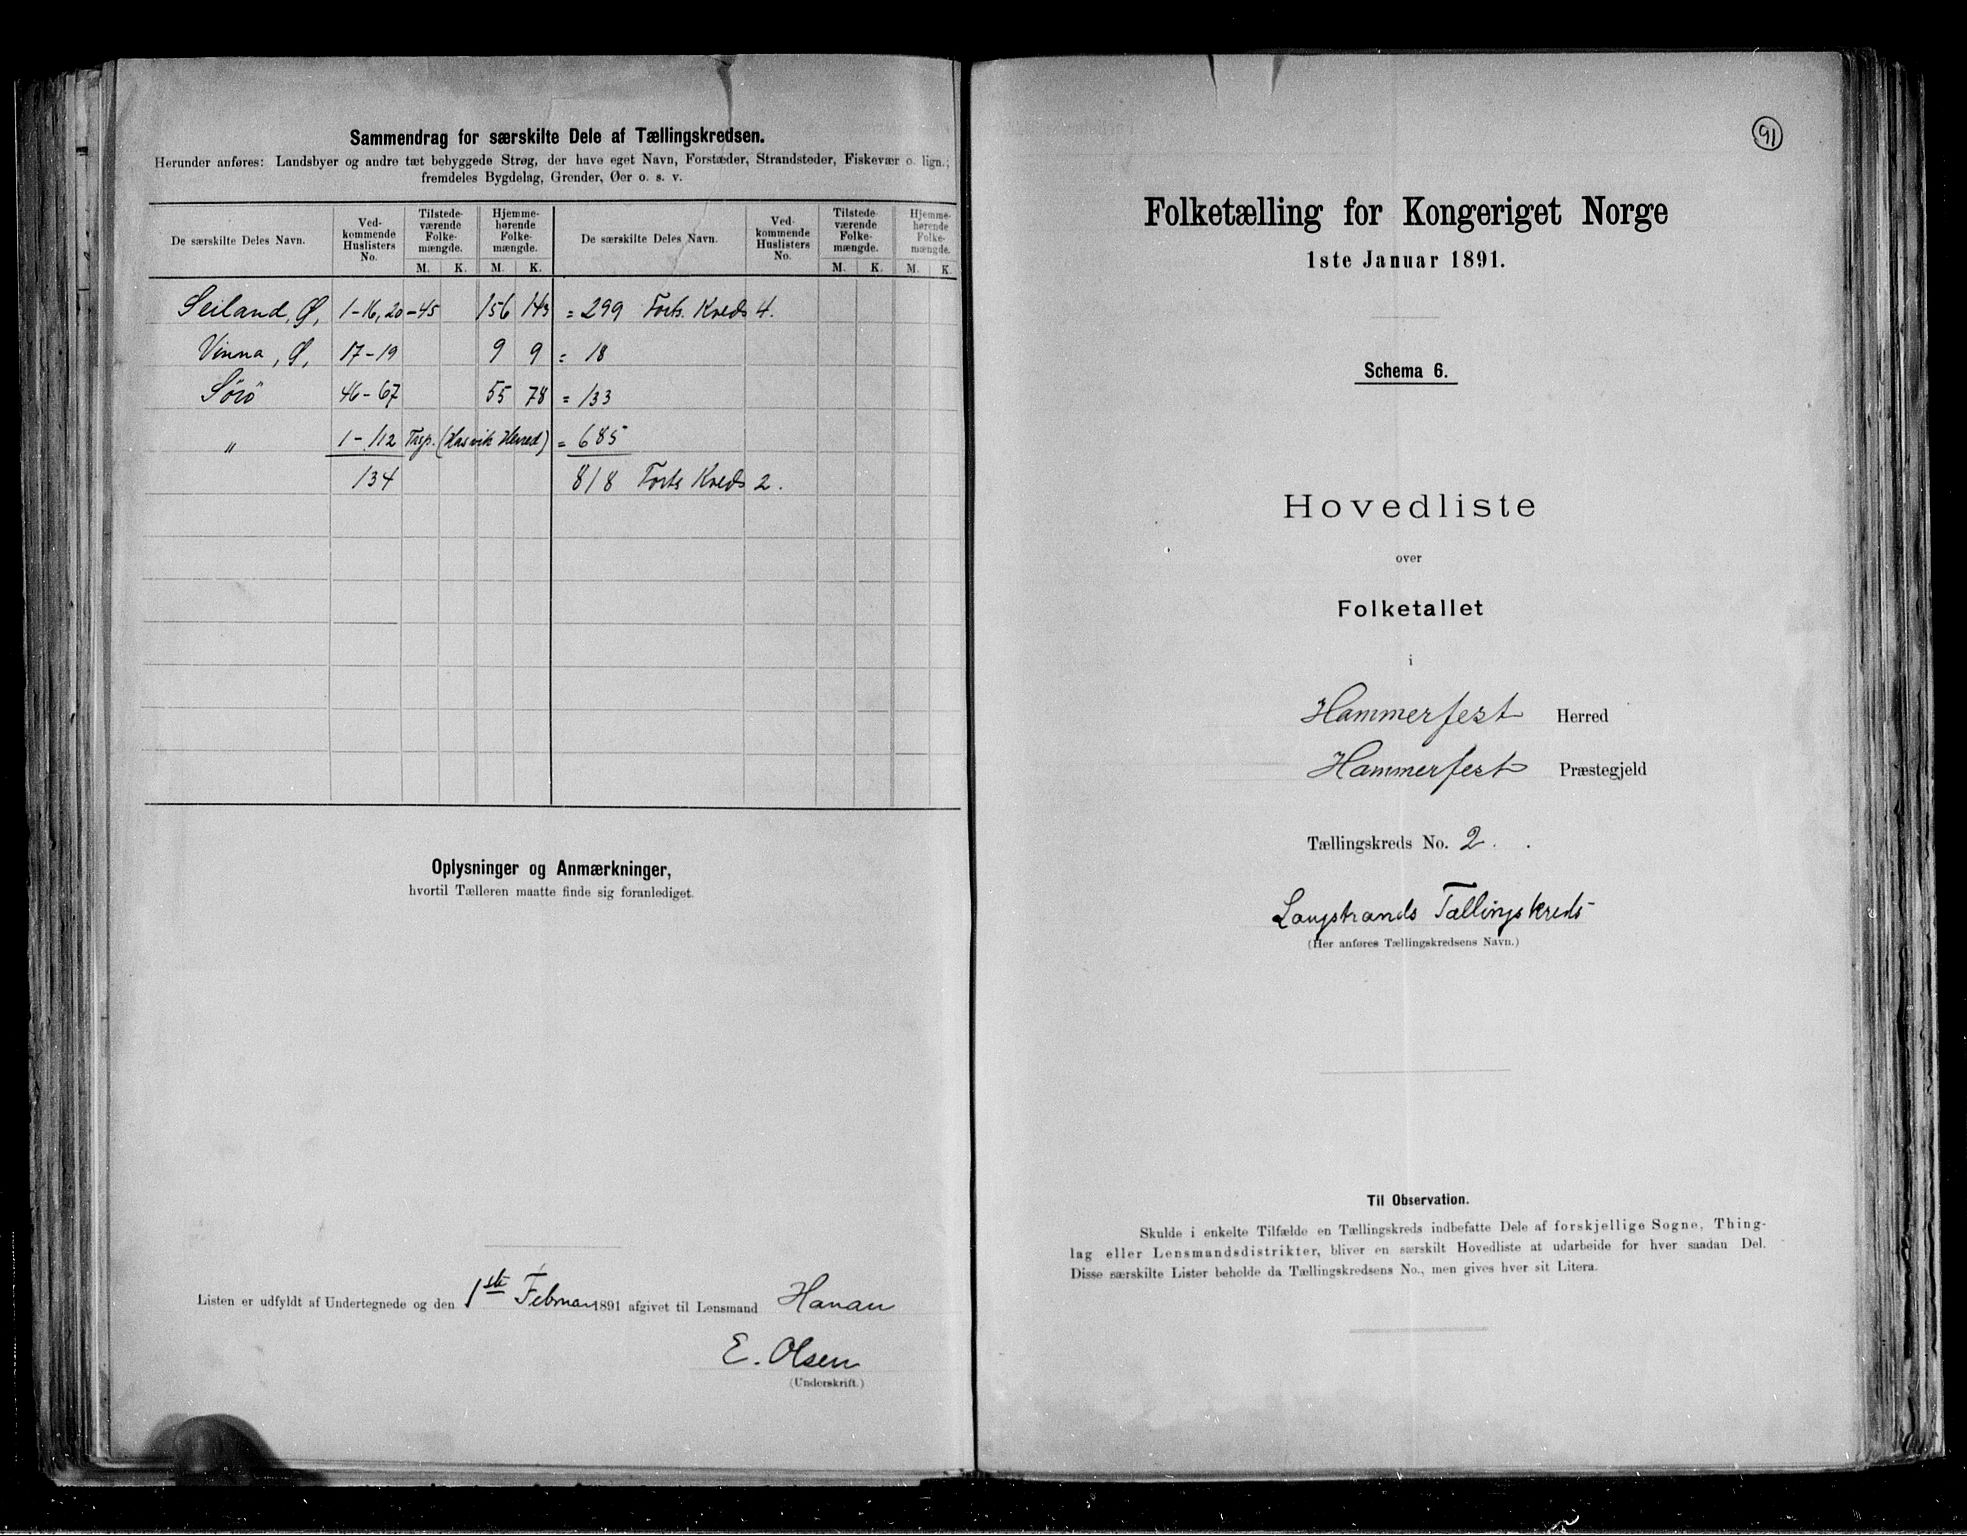 Sammendrag for særskilte Dele af Tællingskredsen.
Herunder anføres: Landsbyer og andre tæt bebyggede Strøg, der have eget Navn, Forstæder, Strandsteder, Fiskevær o. lign.;
fremdeles Bygdelag, Grender, Øer o. s. v.
De særskilte Deles Navn. Ved-kommende Huslisters No. Tilstede-værende Folke-mængde. Hjemme-hørende Folke-mængde. De særskilte Deles Navn. Ved-kommende Huslisters No. Tilstede-værende Folke-mængde. Hjemme-hørende Folke-mængde.
M. K. M. K. M. K. M. K.
Seiland, Ø, 1-16, 20-45 156 143 = 299 Forts. Kreds 4.
Vinna, Ø, 17-19 9 9 = 18
Sørö 46-67 55 78 = 133
" 1-112 Tsp. (Hasvik Herred) = 685
134 818 Forts Kreds 2.
Oplysninger og Anmærkninger,
hvortil Tælleren maatte finde sig foranlediget.
Listen er udfyldt af Undertegnede og den 1ste Februar 1891 afgivet til Lensmand Hanan
E. Olsen
(Underskrift.)
91
Folketælling for Kongeriget Norge
1ste Januar 1891.
Schema 6.
Hovedliste
over
Folketallet
i
Hammerfest Herred
Hammerfest Præstegjeld
Tællingskreds No. 2.
Langstrands Tællingskreds
(Her anføres Tællingskredsens Navn.)
Til Observation.
Skulde i enkelte Tilfælde en Tællingskreds indbefatte Dele af forskjellige Sogne, Thing-
lag eller Lensmandsdistrikter, bliver en særskilt Hovedliste at udarbeide for hver saadan Del.
Disse særskilte Lister beholde da Tællingskredsens No., men gives hver sit Litera.